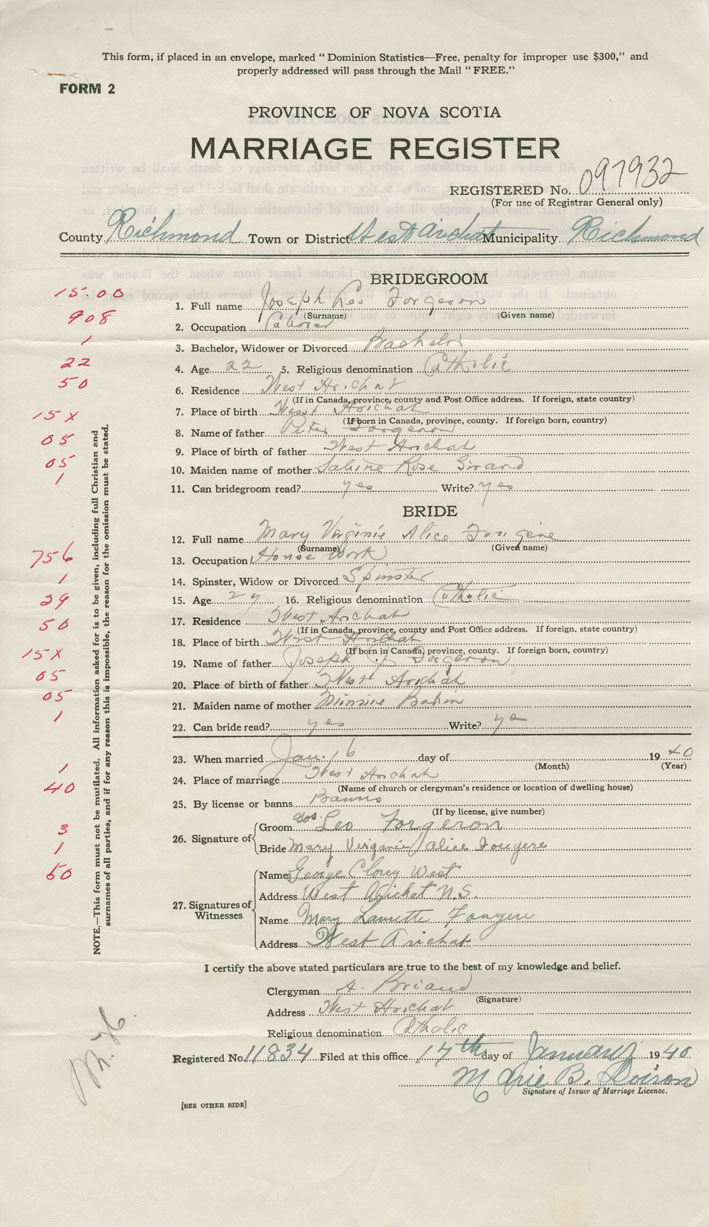 This form, if placed in an envelope, marked "Dominion Statistics—Free, penalty for improper use $300," and
properly addressed will pass through the Mail "FREE."
FORM 2
PROVINCE OF NOVA SCOTIA
MARRIAGE REGISTER
REGISTERED No. 097932
(For use of Registrar General only)
County Richmond Town or District West Arichat Municipality Richmond
BRIDEGROOM
1. Full name Joseph Leo Forgeron
(Surname) (Given name)
2. Occupation Laborer
3. Bachelor, Widower or Divorced Bachelor
4. Age 22 5. Religious denomination Catholic
6. Residence West Arichat
(If in Canada, province, county and Post Office address. If foreign, state country)
7. Place of birth West Arichat
(If born in Canada, province, county. If foreign born, country)
8. Name of father Peter Forgeron
9. Place of birth of father West Arichat
10. Maiden name of mother Sabine Rose Girard
11. Can bridegroom read? yes Write? yes
BRIDE
12. Full name Mary Virginie Alice
(Surname) (Given name)
13. Occupation House Work
14. Spinster, Widow or Divorced Spinster
15. Age 16. Religious denomination Catholic
17. Residence West Arichat
(If in Canada, province, county and Post Office address. If foreign, state country)
18. Place of birth West Arichat
(If born in Canada, province, county. If foreign born, country)
19. Name of father Joseph Forgeron
20. Place of birth of father West Arichat
21. Maiden name of mother Minnie
22. Can bride read? yes Write? yes
23. When married Jan. 16 day of 1940
(Month) (Year)
24. Place of marriage West Arichat
(Name of church or clergyman's residence or location of dwelling house)
25. By license or banns Banns
(If by license, give number)
26. Signature of
Groom Jos. Leo Forgeron
Bride Mary Virginie Alice Fougere
27. Signatures of Witnesses
Name George West
Address West Arichat N.S.
Name Mary
Address West Arichat
I certify the above stated particulars are true to the best of my knowledge and belief.
Clergyman A. Briand
(Signature)
Address West Arichat
Religious denomination Catholic
Registered No. 11834 Filed at this office 17th day of January 1940
Marie B.
Signature of Issuer of Marriage License.
[SEE OTHER SIDE]
NOTE.—This form must not be mutilated. All information asked for is to be given, including full Christian and
surnames of all parties, and if for any reason this is impossible, the reason for the omission must be stated.
15-00
908
1
22
50
15X
05
05
1
756
1
29
50
15X
05
05
1
1
40
3
1
50